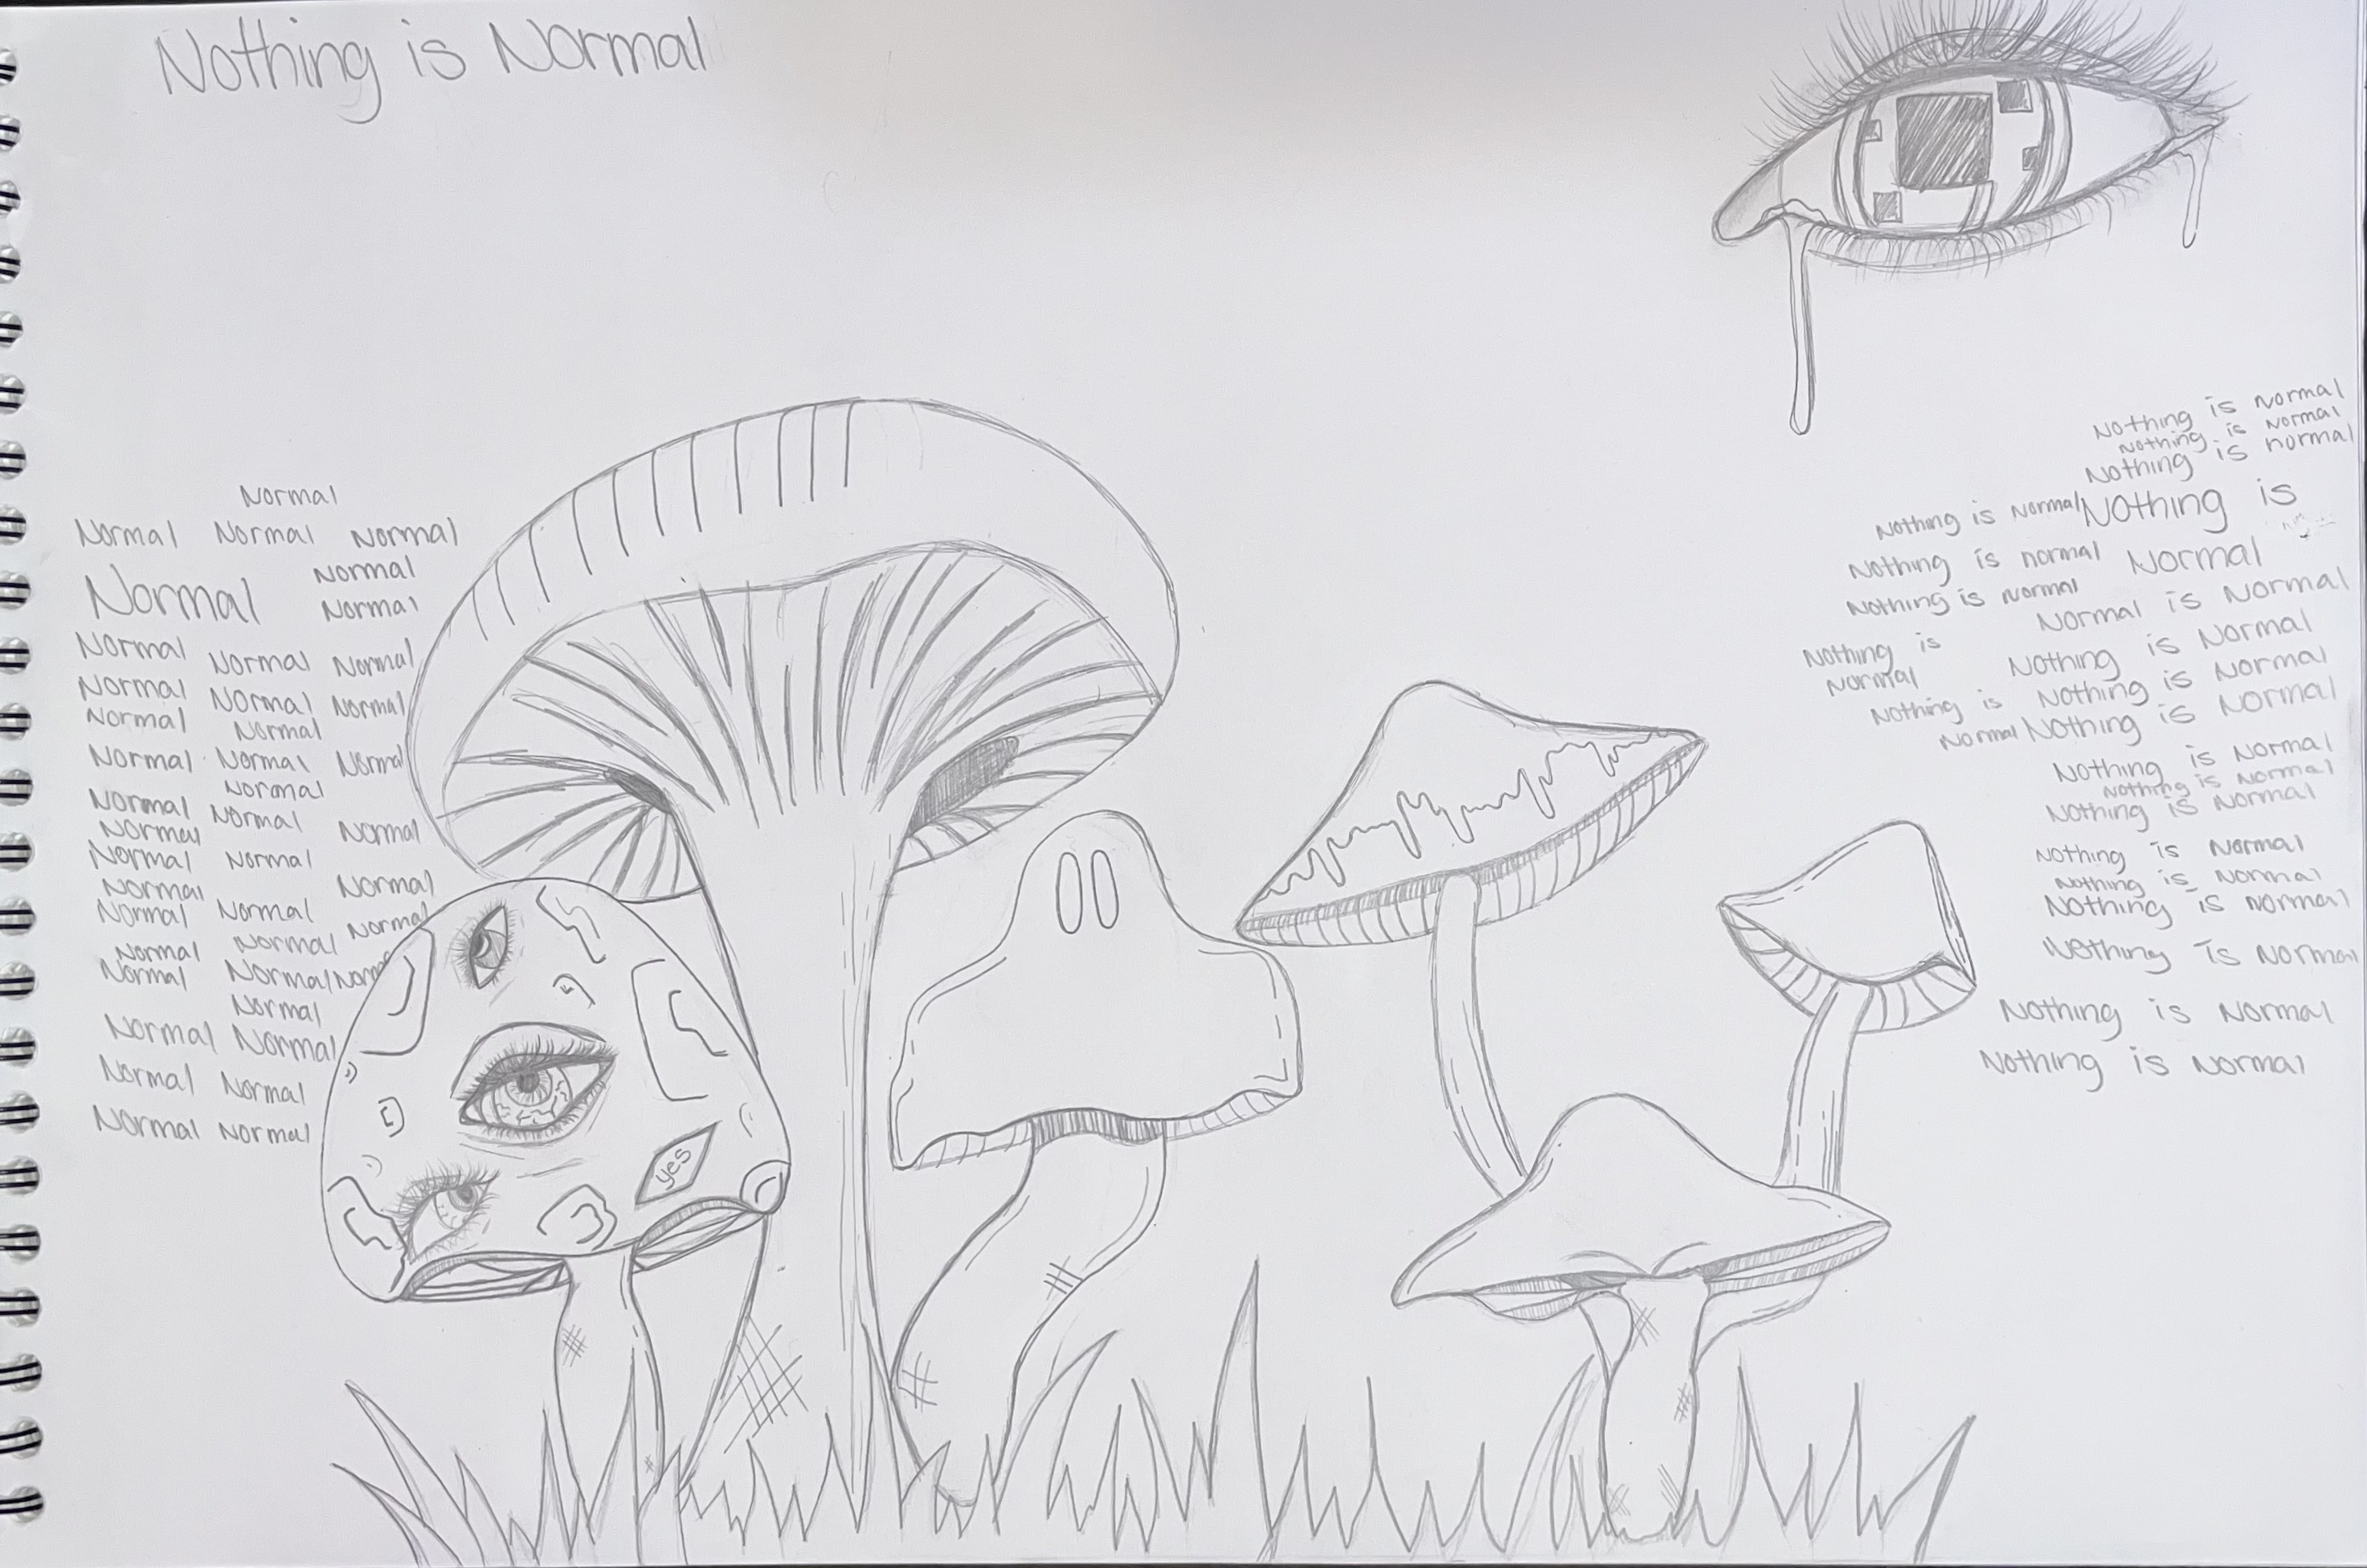 Nothing is Normal
Normal
Normal Normal Normal
Normal
Normal Normal
Normal Normal Normal
Normal Normal Normal
Normal Normal
Normal Normal Normal
Normal
Normal Normal Normal
Normal
Normal Normal
Normal Normal
Normal Normal Normal
Normal Normal
Normal Normal Norm
Normal
Normal Normal
Normal Normal
Normal Normal
yes
Nothing is normal
Nothing is normal
Nothing is normal
Nothing is Normal
Nothing is normal
Nothing is normal
Nothing is
Normal
Nothing is
Normal
Nothing is
Normal
Normal is Normal
Nothing is Normal
Nothing is Normal
Nothing is Normal
Nothing is Normal
Nothing is Normal
Nothing is Normal
Nothing is Normal
Nothing is Normal
Nothing is Normal
Nothing is Normal
Nothing is Normal
Nothing is Normal